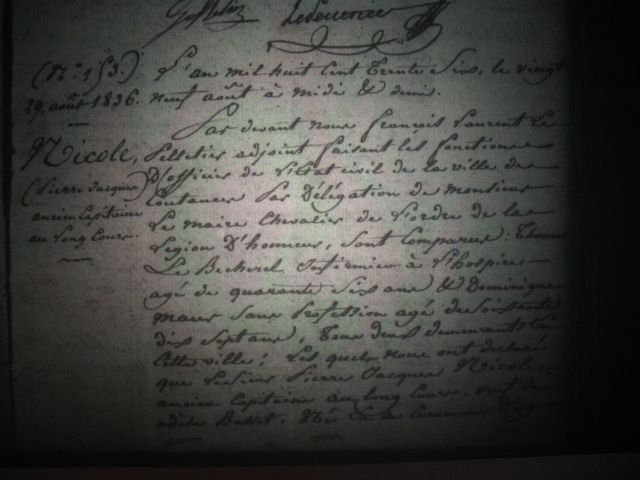 (N.° 153.) L'an mil huit Cent Trente Six, le vingt
29. août 1836. neuf août à midi & demi.
Par devant nous françois Laurent Le
Nicole, Pelletier adjoint faisant les fonctions
(Pierre Jacques) D'officier de l'état civil de la ville de
ancien Capitaine Coutances Par Délégation de Monsieur
au Long Cours. Le maire Chevalier de l'ordre de la
Légion D'honneur, Sont Comparus Thomas
Le Becherel Infirmier à l'hospice
agé de quarante Six ans & Dominique
sans Profession agé de Soixante
dix Sept ans, Tous deux demeurants En
Cette ville; Les quels nous ont déclaré
que Le Sieur Pierre Jacques Nicole
ancien Capitaine au long Cours, veuf de
Né En la Commune